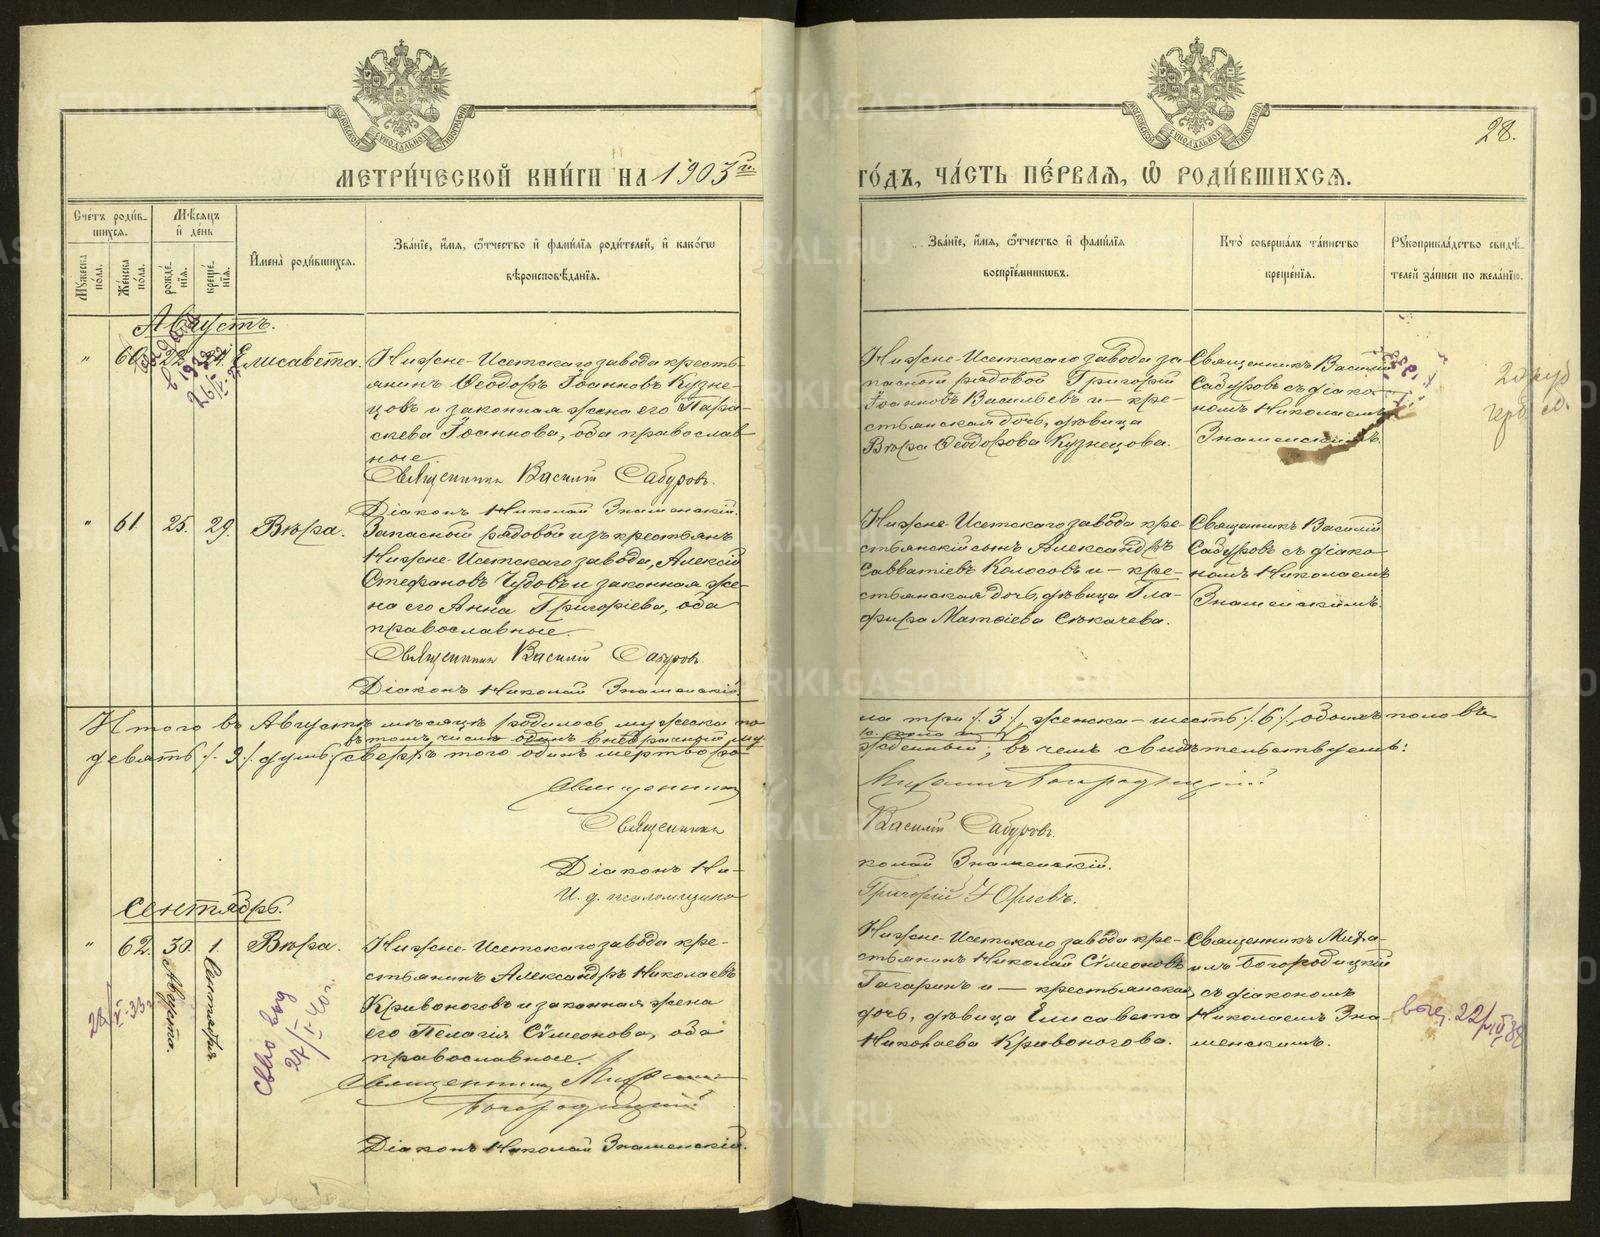 28.
МЕТРИ́ЧЕСКОЙ КНИ́ГИ НА 1903 г.
ГО́ДЪ, ЧА́СТЬ ПЕ́РВАЯ, Ѽ РОДИ́ВШИХСЯ.
Сче́тъ роди́в-
шихся.
Му́жеска по́ла.
Же́нска по́ла.
Мѣ́сяцъ и҆ де́нь
рожде́нїя.
креще́нїя.
И҆мена̀ роди́вшихся.
Зва́нїе, и҆́мя, ѻ҆́тчество и҆ фами́лїя роди́телей, и҆ како́гѡ
вѣроисповѣ́данїя.
Зва́нїе, и҆́мя, ѻ҆́тчество и҆ фами́лїя
воспрїе́мниковъ.
Кто̀ соверша́лъ та́инство
креще́нїя.
Рꙋкоприкла́дство свидѣ́-
телей за́писи по жела́нїю.
Августъ.
" 60. 22. Елисавета.
Нижне-Исетскаго завода кресть-
янинъ Ѳеодоръ Іоанновъ Кузне-
цовъ и законная жена его Пара-
скева Іоаннова, оба православ
ные.
Священникъ Василій Сабуровъ.
Діаконъ Николай Знаменскій.
Нижне-Исетскаго завода за-
пасной рядовой Григорій
Іоанновъ Васильевъ и — кре-
стьянская дочь, дѣвица
Вѣра Ѳеодорова Кузнецова.
Священникъ Василій
Сабуровъ съ діако-
номъ Николаемъ
Знаменскимъ.
" 61. 25. 29. Вѣра.
Запасной рядовой изъ крестьянъ
Нижне-Исетскаго завода, Алексій
Стефановъ Чудовъ и законная же-
на его Анна Григоріева, оба
православные.
Священникъ Василій Сабуровъ.
Діаконъ Николай Знаменскій.
Нижне-Исетскаго завода кре-
стьянскій сынъ Александръ
Савватіевъ Колосовъ и — кре-
стьянская дочь, дѣвица Гла-
фира Матѳіева Сѣкачева.
Священникъ Василій
Сабуровъ съ діако-
номъ Николаемъ
Знаменскимъ.
Итого въ Августѣ мѣсяцѣ родилось мужеска по
ла три /.3./, женска — шесть /.6./, обоихъ половъ
девять /.9./ душъ, сверхъ того одинъ мертворо
жденный, въ чемъ свидѣтельствуемъ:
Священникъ Михаилъ Богородицкій
Священникъ Василій Сабуровъ.
Діаконъ Николай Знаменскій.
И. д. псаломщика Григорій Юрьевъ.
Сентябрь.
" 62. 30. Августа. 1. Сентября. Вѣра.
Нижне-Исетскаго завода кре-
стьянинъ Александръ Николаевъ
Кривоноговъ и законная жена
его Пелагія Сѵмеонова, оба
православные.
Священникъ Михаилъ
Богородицкій
Діаконъ Николай Знаменскій.
Нижне-Исетскаго завода кре-
стьянинъ Николай Сѵмеоновъ
Гагаринъ и — крестьянская
дочь, дѣвица Елисавета
Николаева Кривоногова.
Священникъ Миха-
илъ Богородицкій
съ діакономъ
Николаемъ Зна-
менскимъ.
METRIKI.GASO-URAL.RU